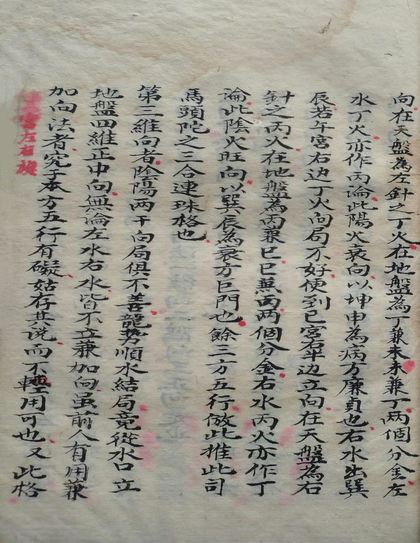 向在天盤為左針之丁火在地盤為丁兼未未兼丁兩個分金左
水丁火亦作丙論此陽火衰向以坤申為病方廉貞也右水出巽
辰若午宮右边丁火向局不好便到巳宮右半边立向在天盤為右
針之丙火在地盤為丙兼巳巳兼丙兩個分金右水丙火亦作丁
論此陰火旺向以巽辰為衰方巨門也餘三方五行倣此推此司
馬頭陀之三合連珠格也
第三維向者陰陽两干向局俱不善龍勢順水結局竟從水口立
地盤四維正中向無淪左水右水皆不立兼加向虽前人有用兼
加向法者究于本方五行有礙姑存其説而不輕用可也又此格